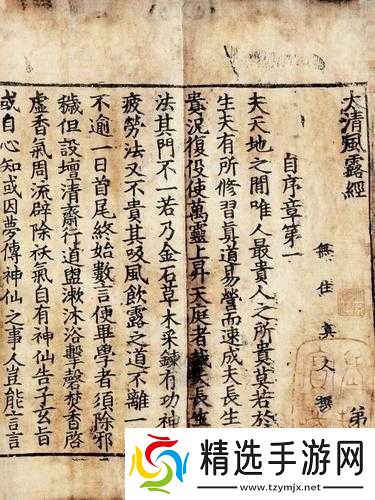 第
太清風露經
無住眞人撰
自序章第一
夫天地之間唯人最貴人之所貴莫若於
生夫有所修習眞道易營而速成夫長生
貴況復役使萬靈上昇天庭者哉夫長生
法其門不一若乃金石草木采鍊有功神
疲勞法又不貴其吸風飲露之道不離一
不逾一日首尾終始數言便畢學者須除邪
穢但設壇清齋行道盥漱沐浴擊磬焚香啓
虛香氣周流辟除祅氣自有神仙告子玄旨
或自心知或因夢傳神仙之事人豈能言言
精选手游网
www.tzymjx.net